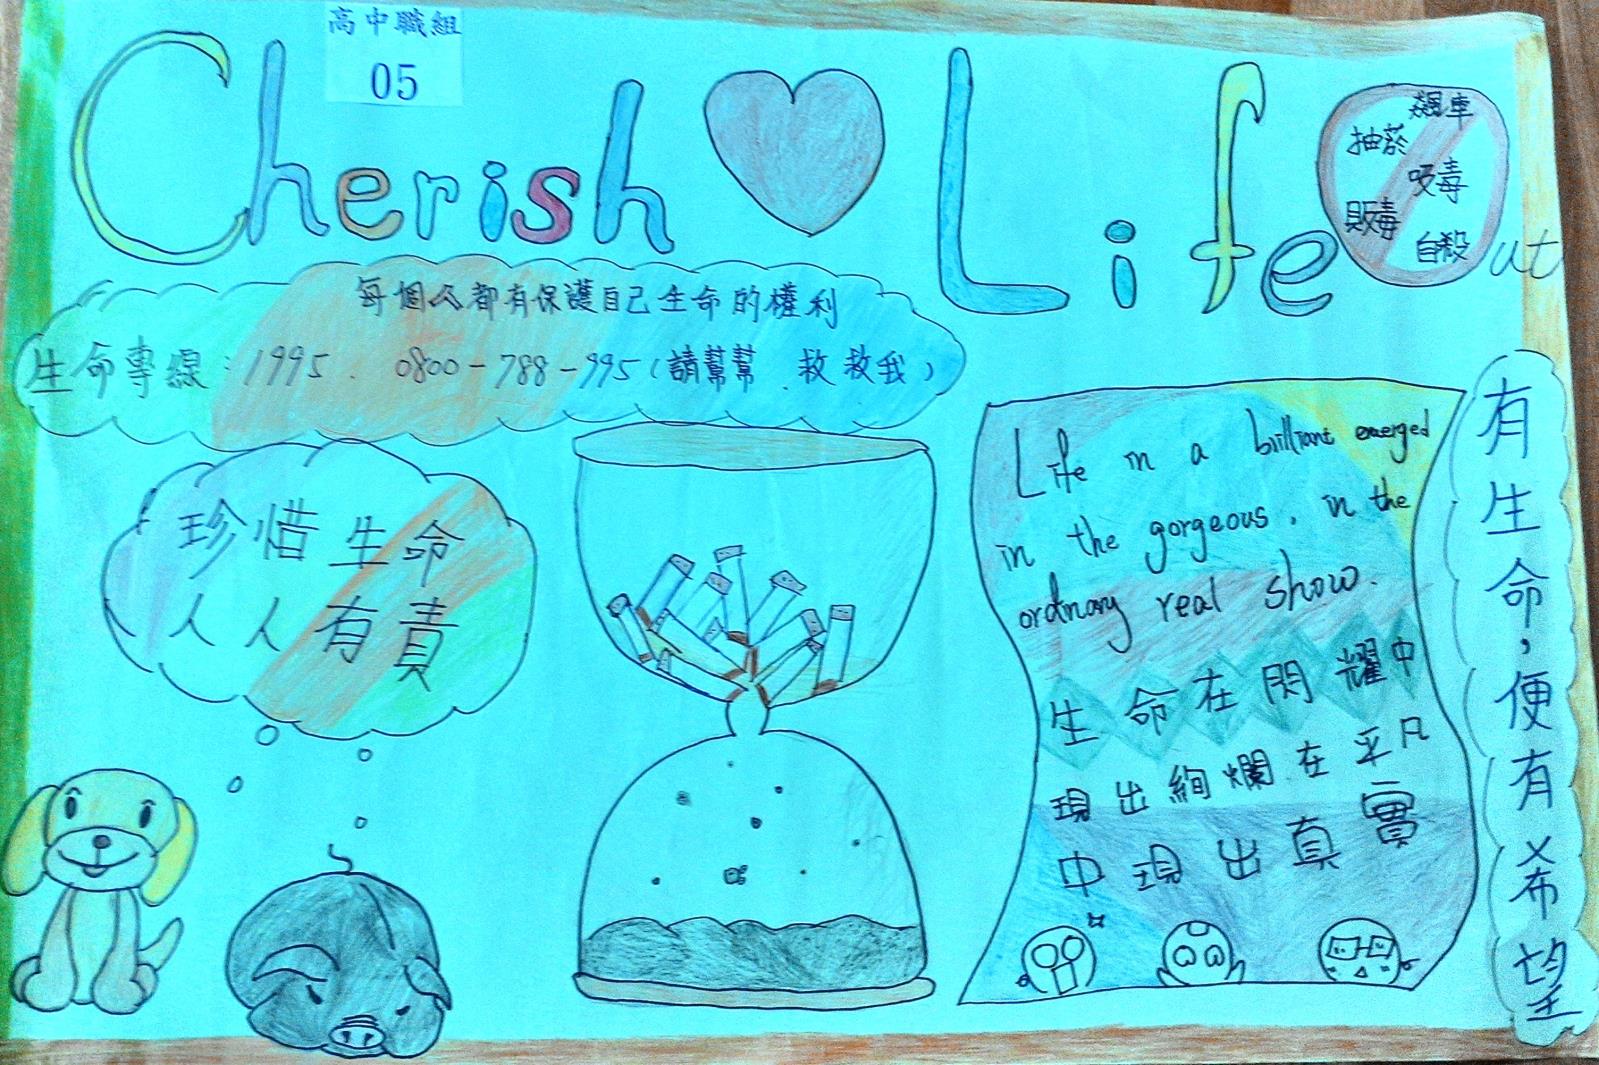 高中職組
05
Cherish Life out
飆車
抽菸
吸毒
販毒
自殺
每個人都有保護自己生命的權利
生命專線:1995、0800-788-995(請幫幫、救救我)
珍惜生命
人人有責
Life in a brilliant emerged
in the gorgeous, in the
ordinary real show.
生命在閃耀中
現出絢爛在平凡
中現出真實
有生命,便有希望